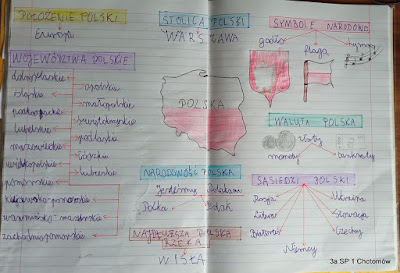 POŁOŻENIE POLSKI
Europa
WOJEWÓDZTWA POLSKIE
dolnośląskie
śląskie
podkarpackie
lubelskie
mazowieckie
wielkopolskie
pomorskie
kujawsko-pomorskie
warmińsko-mazurskie
zachodniopomorskie
opolskie
małopolskie
świętokrzyskie
podlaskie
łódzkie
lubuskie
STOLICA POLSKI
WARSZAWA
POLSKA
NARODOWOŚĆ POLSKA
Jesteśmy Polakami
Polka
Polak
NAJDŁUŻSZA POLSKA
RZEKA
WISŁA
SYMBOLE NARODOWE
godło
flaga
hymn
WALUTA POLSKA
złoty
monety
banknoty
SĄSIEDZI POLSKI
Rosja
Litwa
Białoruś
Ukraina
Słowacja
Czechy
Niemcy
3a SP 1 Chotomów